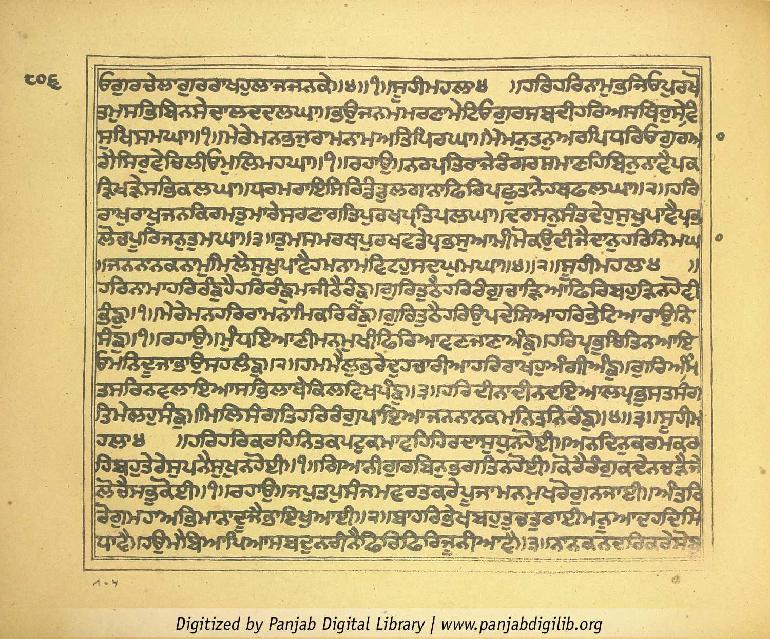 ਓਗੁਰਚੇਲਾਗੁਰਰਾਖਹੁਲਾਜਜਨਕੇ॥੪॥੧॥ਸੂਹੀਮਹਲਾ੪ ॥ਹਰਿਹਰਿਨਾਮੁਭਜਿਓਪੁਰਖੋ
ਤਮੁਸਭਿਬਿਨਸੇਦਾਲਦਦਲਘਾ॥ਭਉਜਨਮਮਰਣਾਮੇਟਿਓਗੁਰਸਬਦੀਹਰਿਅਸਥਿਰੁਸੇਵਿ
ਸੁਖਿਸਮਘਾ॥੧॥ਮੇਰੇਮਨਭਜੁਰਾਮਨਾਮਅਤਿਪਿਰਘਾ॥ਮੈਮਨੁਤਨੁਅਰਪਿਧਰਿਓਗੁਰਆ
ਗੈਸਿਰੁਵੇਚਿਲੀਓਮੁਲਿਮਹਘਾ॥੧॥ਰਹਾਉ॥ਨਰਪਤਿਰਾਜੇਰੰਗਰਸਮਾਣਹਿਬਿਨੁਨਾਵੈਪਕ
ੜਿਖੜੇਸਭਿਕਲਘਾ॥ਧਰਮਰਾਇਸਿਰਿਡੰਡੁਲਗਾਨਾਫਿਰਿਪਛੁਤਾਨੇਹਥਫਲਘਾ॥੨॥ਹਰਿ
ਰਾਖੁਰਾਖੁਜਨਕਿਰਮਤੁਮਾਰੇਸਰਣਾਗਤਿਪੁਰਖਪ੍ਰਤਿਪਲਘਾ॥ਦਰਸਨੁਸੰਤਦੇਹੁਸੁਖੁਪਾਵੈਪ੍ਰਭ
ਲੋਚਪੂਰਿਜਨੁਤੁਮਘਾ॥੩॥ਤੁਮਸਮਰਥਪੁਰਖਵਡੇਪ੍ਰਭਸੁਆਮੀਮੋਕਉਦੀਜੈਦਾਨੁਹਰਿਨਿਮਘਾ
॥ਜਨਨਾਨਕਨਾਮੁਮਿਲੈਸੁਖੁਪਾਵੈਹਮਨਾਮਵਿਟਹੁਸਦਘੁਮਘਾ॥੪॥੨॥ਸੂਹੀਮਹਲਾ੪ ॥
ਹਰਿਨਾਮਾਹਰਿਰੰਙੁਹੈਹਰਿਰੰਙੁਮਜੀਠੈਰੰਙੁ॥ਗੁਰਿਤੁਠੈਹਰਿਰੰਗੁਚਾੜਿਆਫਿਰਿਬਹੁੜਿਨਹੋਵੀ
ਭੰਙੁ॥੧॥ਮੇਰੇਮਨਹਰਿਰਾਮਨਾਮਿਕਰਿਰੰਙੁ॥ਗੁਰਿਤੁਠੈਹਰਿਉਪਦੇਸਿਆਹਰਿਭੇਟਿਆਰਾਉਨਿ
ਸੰਙੁ॥੧॥ਰਹਾਉ॥ਮੁੰਧਇਆਣੀਮਨਮੁਖੀਫਿਰਿਆਵਣਜਾਣਾਅੰਙੁ॥ਹਰਿਪ੍ਰਭੁਚਿਤਿਨਆਇ
ਓਮਨਿਦੂਜਾਭਾਉਸਹਲੰਙੁ॥੨॥ਹਮਮੈਲੁਭਰੇਦੁਹਚਾਰੀਆਹਰਿਰਾਖਹੁਅੰਗੀਅੰਙੁ॥ਗੁਰਿਅੰਮ੍ਰਿ
ਤਸਰਿਨਵਲਾਇਆਸਭਿਲਾਥੇਕਿਲਵਿਖਪੰਙੁ॥੩॥ਹਰਿਦੀਨਾਦੀਨਦਇਆਲਪ੍ਰਭੁਸਤਸੰਗ
ਤਿਮੇਲਹੁਸੰਙੁ॥ਮਿਲਿਸੰਗਤਿਹਰਿਰੰਗੁਪਾਇਆਜਨਨਾਨਕਮਨਿਤਨਿਰੰਙੁ॥੪॥੩॥ਸੂਹੀਮ
ਹਲਾ੪ ॥ਹਰਿਹਰਿਕਰਹਿਨਿਤਕਪਟੁਕਮਾਵਹਿਹਿਰਦਾਸੁਧੁਨਹੋਈ॥ਅਨਦਿਨੁਕਰਮਕਰ
ਹਿਬਹੁਤੇਰੇਸੁਪਨੈਸੁਖੁਨਹੋਈ॥੧॥ਗਿਆਨੀਗੁਰਬਿਨੁਭਗਤਿਨਹੋਈ॥ਕੋਰੈਰੰਗੁਕਦੇਨਚੜੈਜੇ
ਲੋਚੈਸਭੁਕੋਈ॥੧॥ਰਹਾਉ॥ਜਪੁਤਪਸੰਜਮਵਰਤਕਰੇਪੂਜਾਮਨਮੁਖਰੋਗੁਨਜਾਈ॥ਅੰਤਰਿ
ਰੋਗੁਮਹਾਅਭਿਮਾਨਾਦੂਜੈਭਾਇਖੁਆਈ॥੨॥ਬਾਹਰਿਭੇਖਬਹੁਤੁਚਤੁਰਾਈਮਨੂਆਦਹਦਿਸਿ
ਧਾਵੈ॥ਹਉਮੈਬਿਆਪਿਆਸਬਦੁਨਚੀਨੈਫਿਰਿਫਿਰਿਜੂਨੀਆਵੈ॥੩॥ਨਾਨਕਨਦਰਿਕਰੇਸੋਬੂ
Digitized by Panjab Digital Library | www.panjabdigilib.org